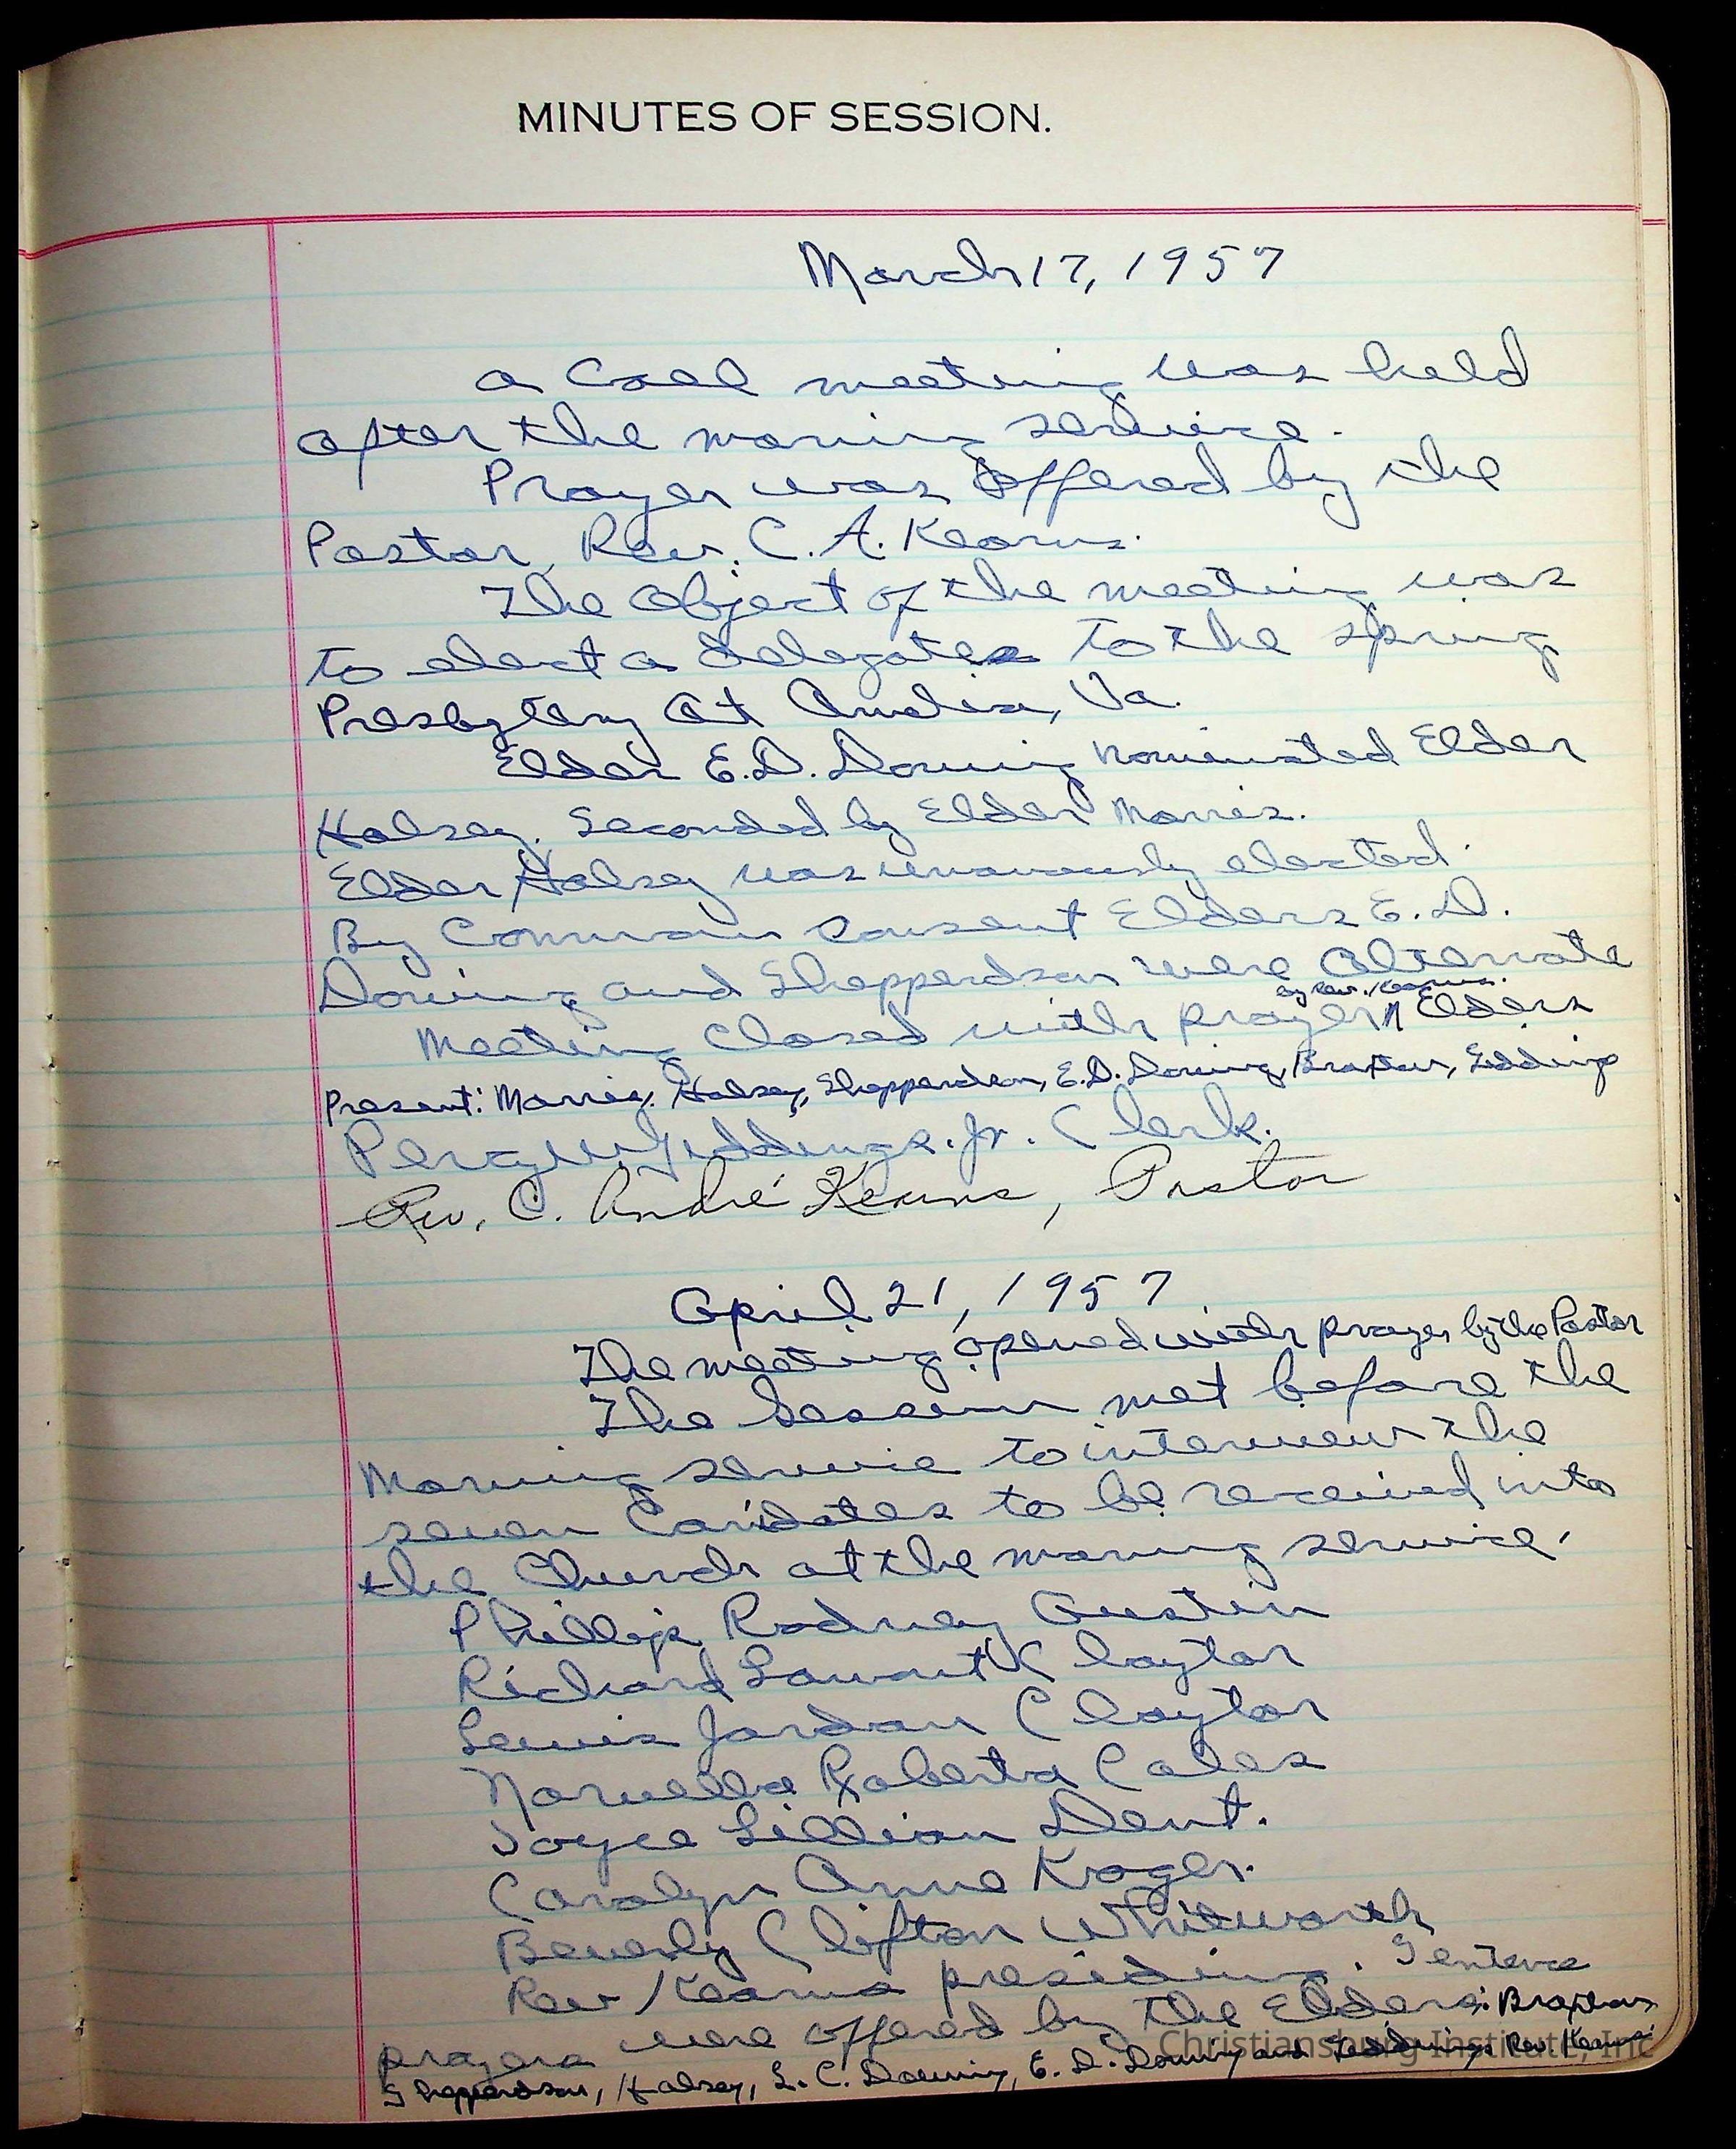 MINUTES OF SESSION.
March 17, 1957
a Call meeting was held
after the morning service.
Prayer was offered by the
Pastor, Rev. C. A. Kearns.
The Object of the meeting was
to elect a delegate to the spring
Presbytery at Amelia, Va.
Elder E. D. Downing nominated Elder
Halsey. Seconded by Elder Morris.
Elder Halsey was elected.
By Common consent Elders E. D.
Downing and Shepperdson were Alternate
by Rev. Kearns.
Meeting closed with prayer Elders
Present: Morris, Halsey, Shepperdson, E. D. Downing, Braxton, Giddings
Percy W Giddings. Jr. Clerk.
Rev. C. André Kearns, Pastor
April 21, 1957
The meeting opened with prayer by the Pastor
The Session met before the
Morning service to interview the
seven Canidates to be received into
the Church at the morning service.
Phillip Rodney Austin
Richard Claytor
Lewis Jordan Claytor
Norvella Roberta Cales
Joyce Lillian Dent.
Carolyn Anne Kroger.
Beverly Clifton Whitworth
Rev Kearns presiding. Sentence
prayers were offered by the Elders: Braxton
Shepperdson, Halsey, L. C. Downing, E. D. Downing and Giddings Rev. Kearns
Christiansburg Institute, Inc